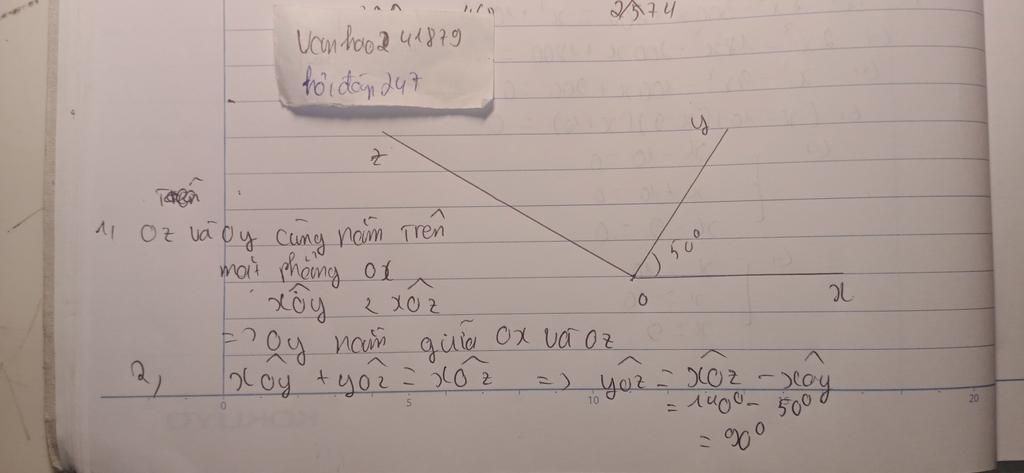 2574
Vanhao2 41879
hỏi đáp 247
z
y
50⁰
O
x
1, Oz và Oy cùng nằm trên
mặt phẳng Ox
xÔy < xÔz
=> Oy nằm giữa Ox và Oz
2, xÔy + yÔz = xÔz => yÔz = xÔz - xÔy
= 140⁰ - 50⁰
= 90⁰
0 5 10 20